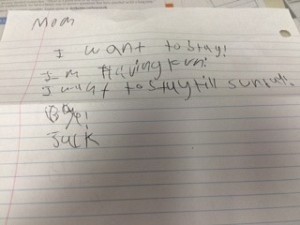 Mom
I want to stay!
I-m Having Fun!
I want to stay till
Bye!
Jack